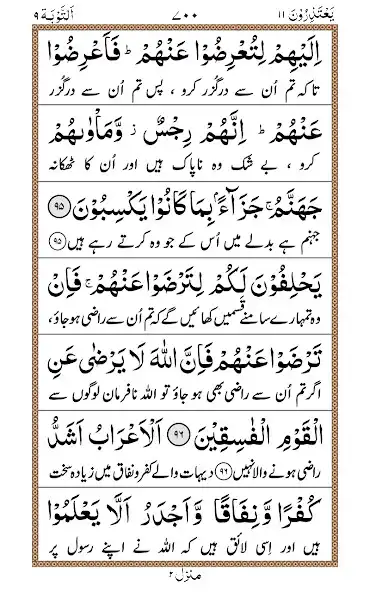 يَعْتَذِرُوْنَ ١١ ٧٠٠ اَلتَّوْبَة ٩
اِلَيْهِمْ لِتُعْرِضُوْا عَنْهُمْ ؕ فَاَعْرِضُوْا
تاکہ تم اُن سے درگزر کرو ، پس تم اُن سے درگزر
عَنْهُمْ ؕ اِنَّهُمْ رِجْسٌ ؗ وَّمَاْوٰىهُمْ
کرو ، بے شک وہ ناپاک ہیں اور اُن کا ٹھکانہ
جَهَنَّمُ ۚ جَزَآءًۢ بِمَا كَانُوْا يَكْسِبُوْنَ ۹۵
جہنم ہے بدلے میں اُس کے جو وہ کرتے رہے ہیں ۹۵
يَحْلِفُوْنَ لَكُمْ لِتَرْضَوْا عَنْهُمْ ۚ فَاِنْ
وہ تمہارے سامنے قسمیں کھائیں گے کہ تم اُن سے راضی ہو جاؤ،
تَرْضَوْا عَنْهُمْ فَاِنَّ اللّٰهَ لَا يَرْضٰى عَنِ
اگر تم اُن سے راضی بھی ہو جاؤ تو اللہ نافرمان لوگوں سے
الْقَوْمِ الْفٰسِقِيْنَ ۹۶ اَلْاَعْرَابُ اَشَدُّ
راضی ہونے والا نہیں ۹۶ دیہات والے کفر و نفاق میں زیادہ سخت
كُفْرًا وَّنِفَاقًا وَّاَجْدَرُ اَلَّا يَعْلَمُوْا
ہیں اور اِسی لائق ہیں کہ اللہ نے اپنے رسول پر
منزل ۲